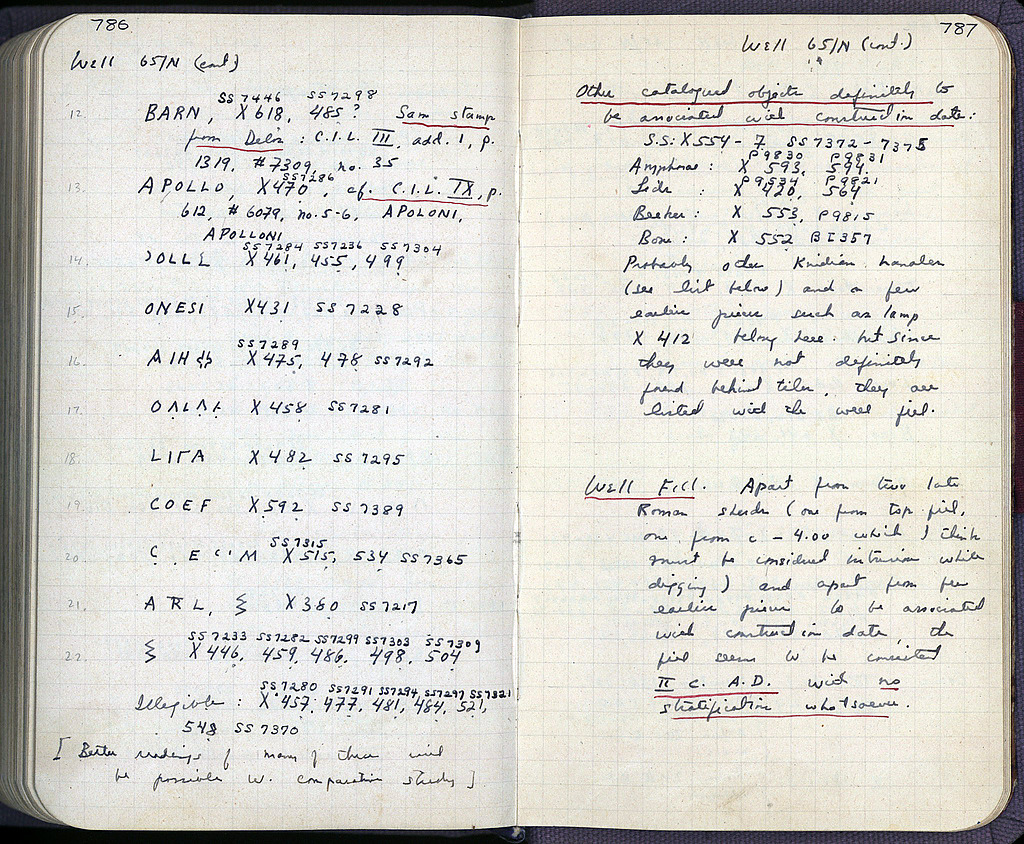 786
Well 65/N (cont)
SS 7446 SS 7298
12. BARN, X 618, 485? Sam stamp
from Delos : C.I.L. III, add. 1, p.
1319, #7309, no. 35
SS7286
13. APOLLO, X470, cf. C.I.L. IX, p.
612, # 6079, no. 5-6, APOLONI,
APOLLONI
SS7284 SS7236 SS7304
14. X461, 455, 499
15. ONESI X431 SS 7228
SS7289
16. X475, 478 SS7292
17. X458 SS7281
18. X482 SS 7295
19. COEF X592 SS 7389
SS7315
20. X515, 534 SS7365
21. X380 SS7217
SS7233 SS7282 SS7299 SS7303 SS7309
22. X446, 459, 486, 498, 504
SS7280 SS7291 SS7294 SS7297 SS7321
Illegible : X457, 477, 481, 484, 521,
548 SS 7370
[ Better readings of many of these will
be possible w. comparative study ]
787
Well 65/N (cont.)
Other catalogued objects definitely to
be associated with construction date:
S.S: X554 - 7 SS 7372 - 7375
P9830 P9831
Amphorae: X 593, 594
P9534 P9821
Lids : X 420, 564
Beaker: X 553, P9815
Bone: X 552 BI357
Probably other Knidian handles
(see list below) and a few
earlier pieces such as lamp
X 412 belong here. but since
they were not definitely
found behind tiles, they are
listed with the well fill.
Well Fill. Apart from two late
Roman sherds (one from top fill,
one from c - 4.00 which I think
must be considered intrusion while
digging) and apart from few
earlier pieces to be associated
with construction date, the
fill seems to be consistent
II c. A.D. with no
stratification whatsoever.